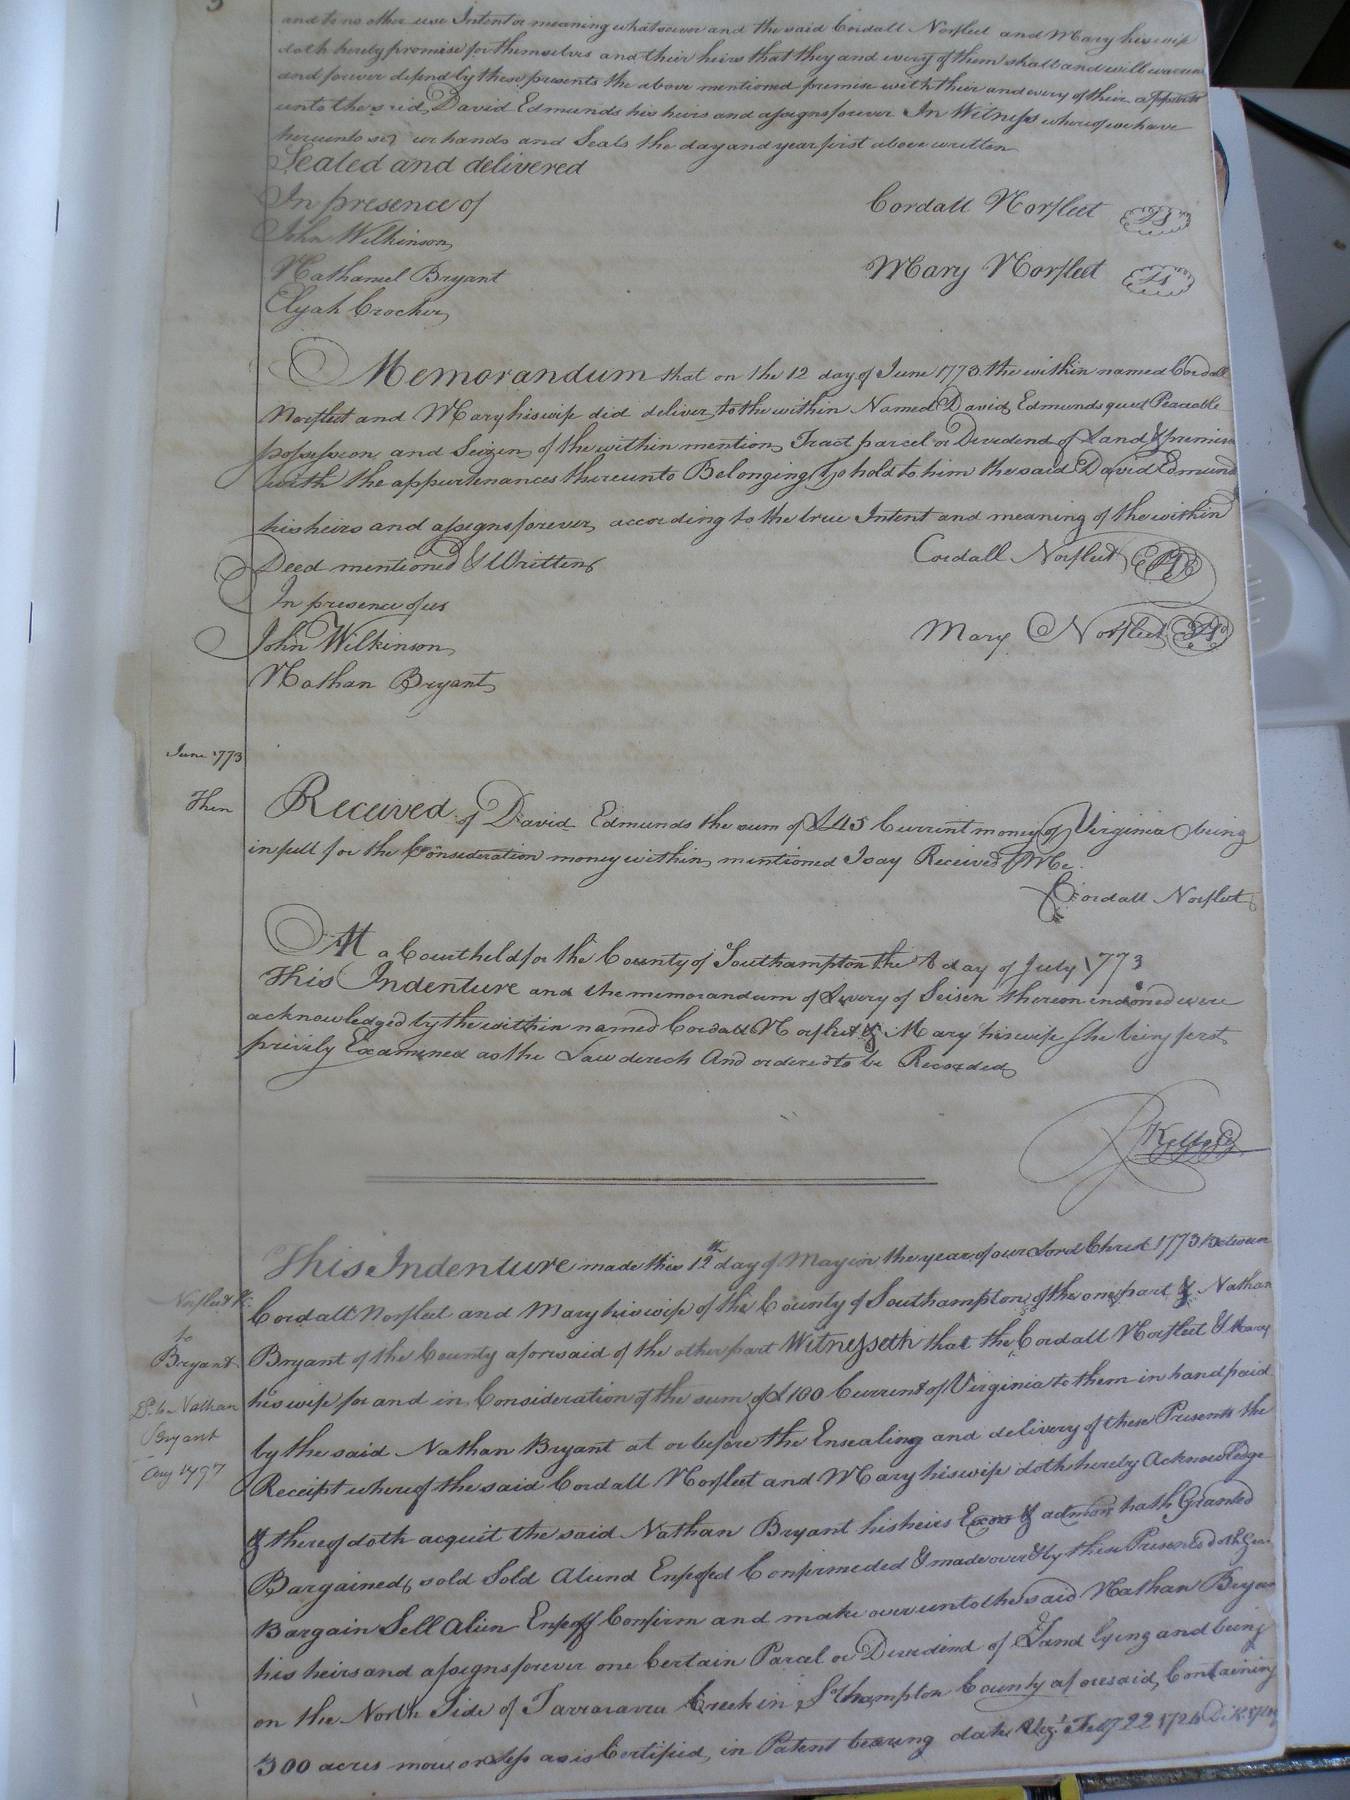 and to no other use Intent or meaning whatsoever and the said Cordall Norfleet and Mary his wife
doth hereby promise for themselves and their heirs that they and every of them shall and will warrant
and forever defend by these presents the above mentioned premise with their and every of their appurts
unto the said David Edmunds his heirs and assigns forever In Witness whereof we have
hereunto set our hands and Seals the day and year first above written
Sealed and delivered
In presence of
Cordall Norfleet LS
John Wilkinson
Nathaniel Bryant
Mary Norfleet LS
Elijah Crocker
Memorandum that on the 12 day of June 1773 the within named Cordall
Norfleet and Mary his wife did deliver to the within Named David Edmunds quiet Peaceable
possession and Seizen of the within mention Tract parcel or Dividend of Land & premises
with the appurtenances thereunto Belonging To hold to him the said David Edmunds
his heirs and assigns forever according to the true Intent and meaning of the within
Deed mentioned & Written
Cordall Norfleet
In presence of us
John Wilkinson
Mary Norfleet
Nathan Bryant
June 1773
Then
Received of David Edmunds the sum of £45 Current money of Virginia being
in full for the Consideration money within mentioned I say Received Me
Cordall Norfleet
At a Court held for the County of Southampton the 8 day of July 1773
This Indenture and the memorandum of Livery of Seisen thereon indorsed were
acknowledged by the within named Cordall Norfleet & Mary his wife She being first
privily Examined as the Law directs And ordered to be Recorded
This Indenture made this 12th day of May in the year of our Lord Christ 1773 Between
Norfleet
to
Bryant
Nathan
Bryant
Aug 1797
Cordall Norfleet and Mary his wife of the County of Southampton of the one part & Nathan
Bryant of the County aforesaid of the other part Witnesseth that the Cordall Norfleet & Mary
his wife for and in Consideration of the sum of £100 Current of Virginia to them in hand paid
by the said Nathan Bryant at or before the Ensealing and delivery of these Presents the
Receipt whereof the said Cordall Norfleet and Mary his wife doth hereby Acknowledge
& thereof doth acquit the said Nathan Bryant his heirs Excrs & admors hath Granted
Bargained sold Sold Aliend Enfeofed Confirmeded & made over & by these Presents doth
Bargain Sell Alien Enfeoff Confirm and make over unto the said Nathan Bryan
his heirs and assigns forever one Certain Parcel or Dividend of Land lying and being
on the North Side of Tarrarara Creek in Sothampton County aforesaid Containing
300 acres more or less as is Certified in Patent bearing date